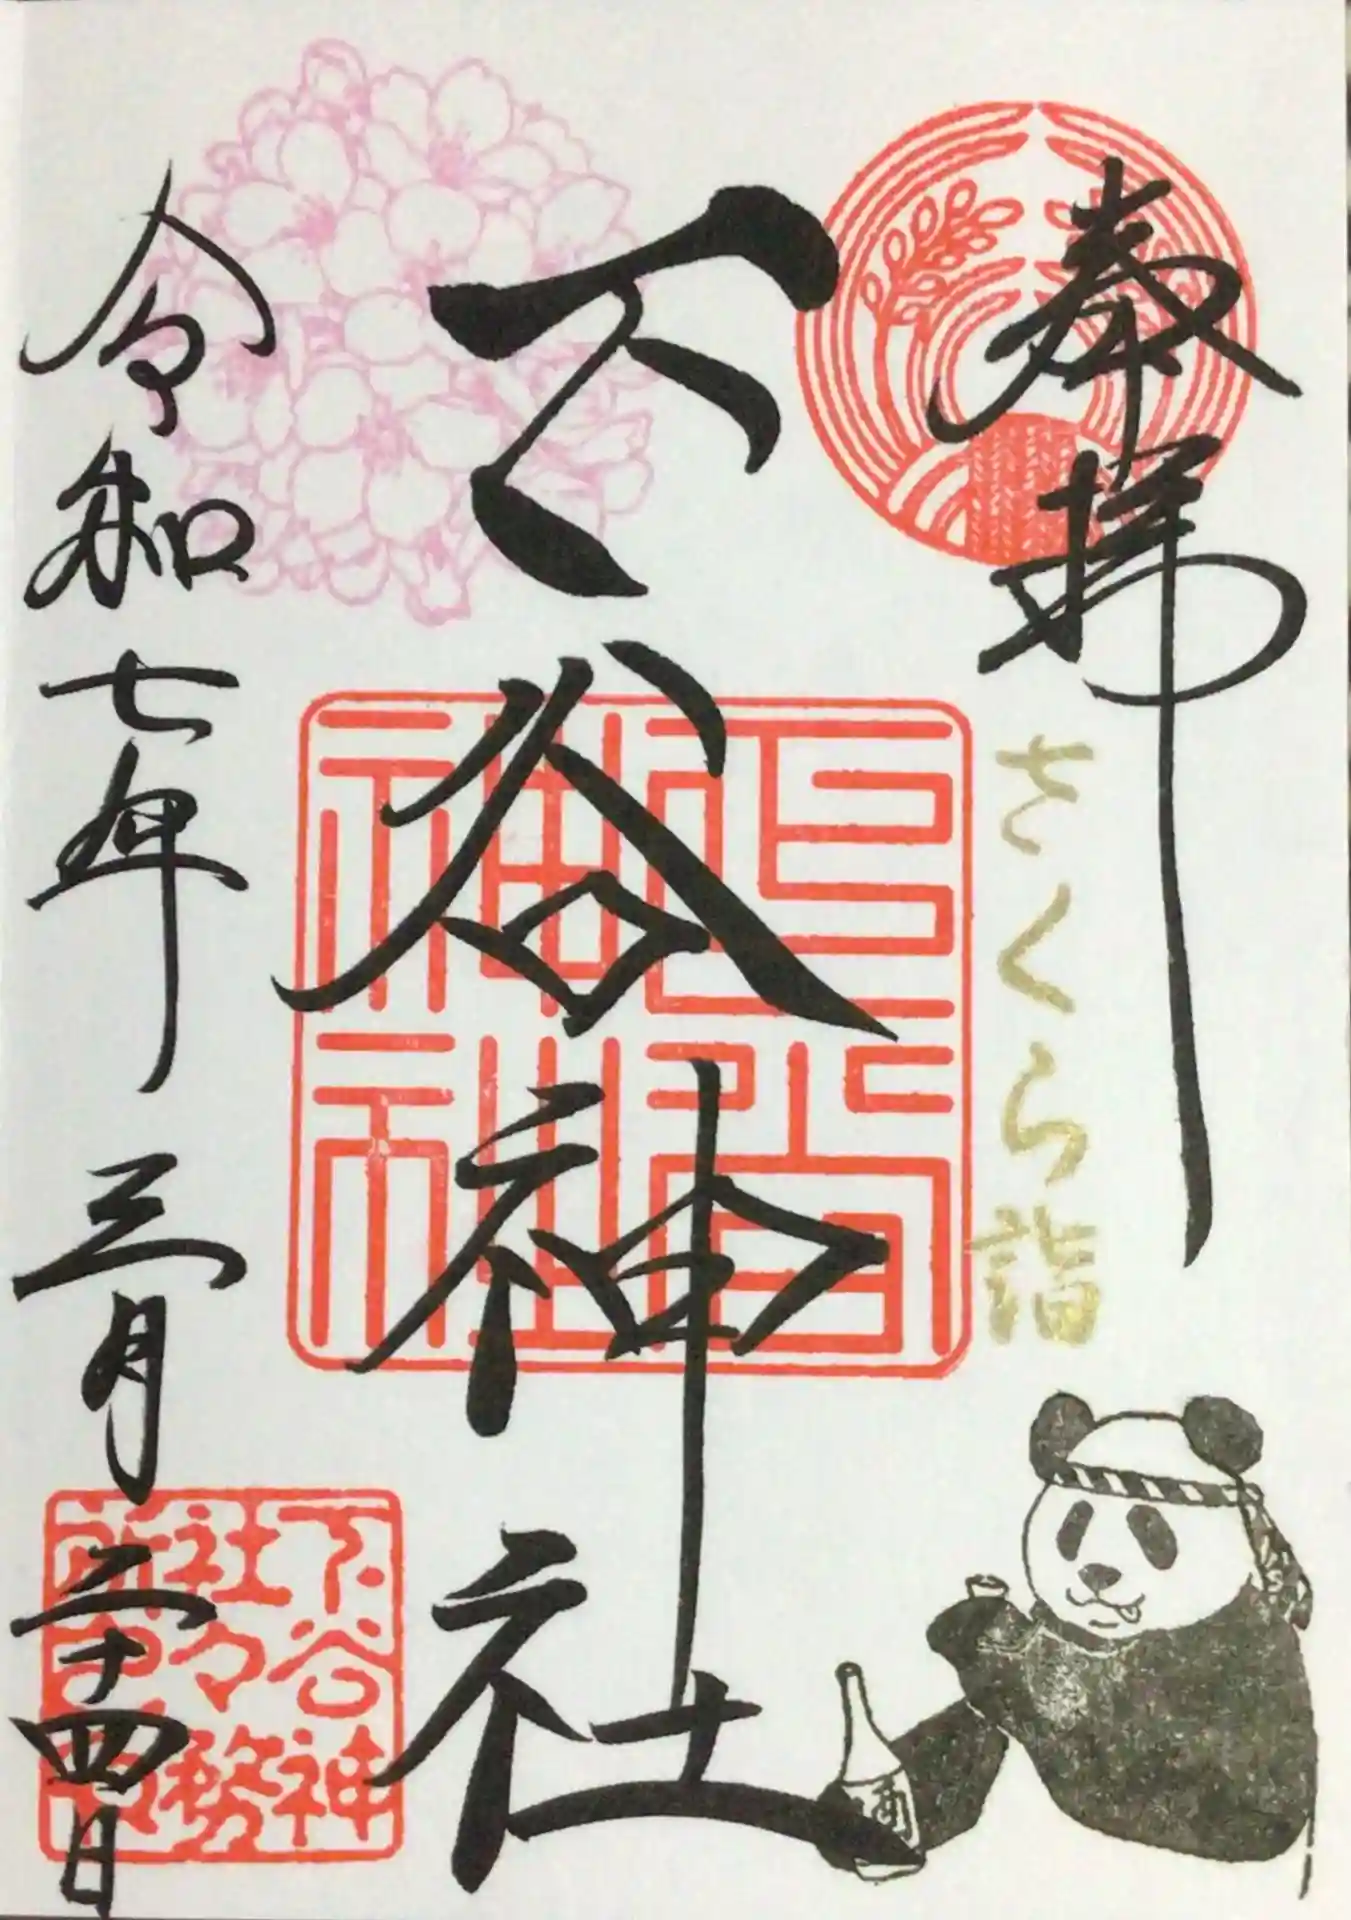 奉拝
さくら詣
下谷神社
令和七年三月二十四日
下谷神
社々務
所之印
酒